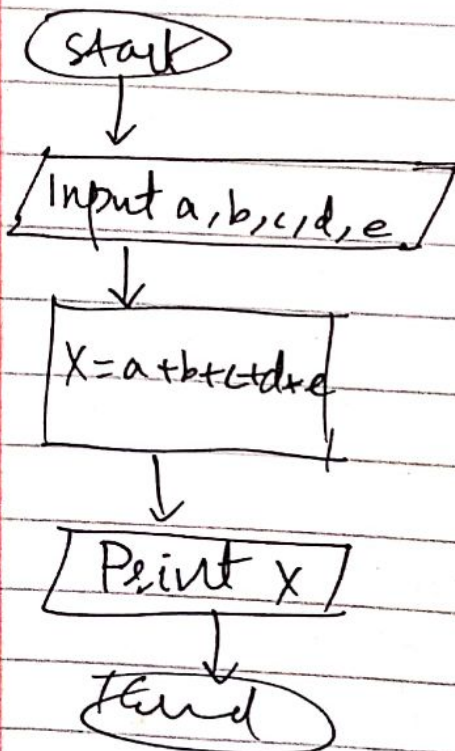 Start
Input a, b, c, d, e
X = a + b + c + d + e
Print X
End